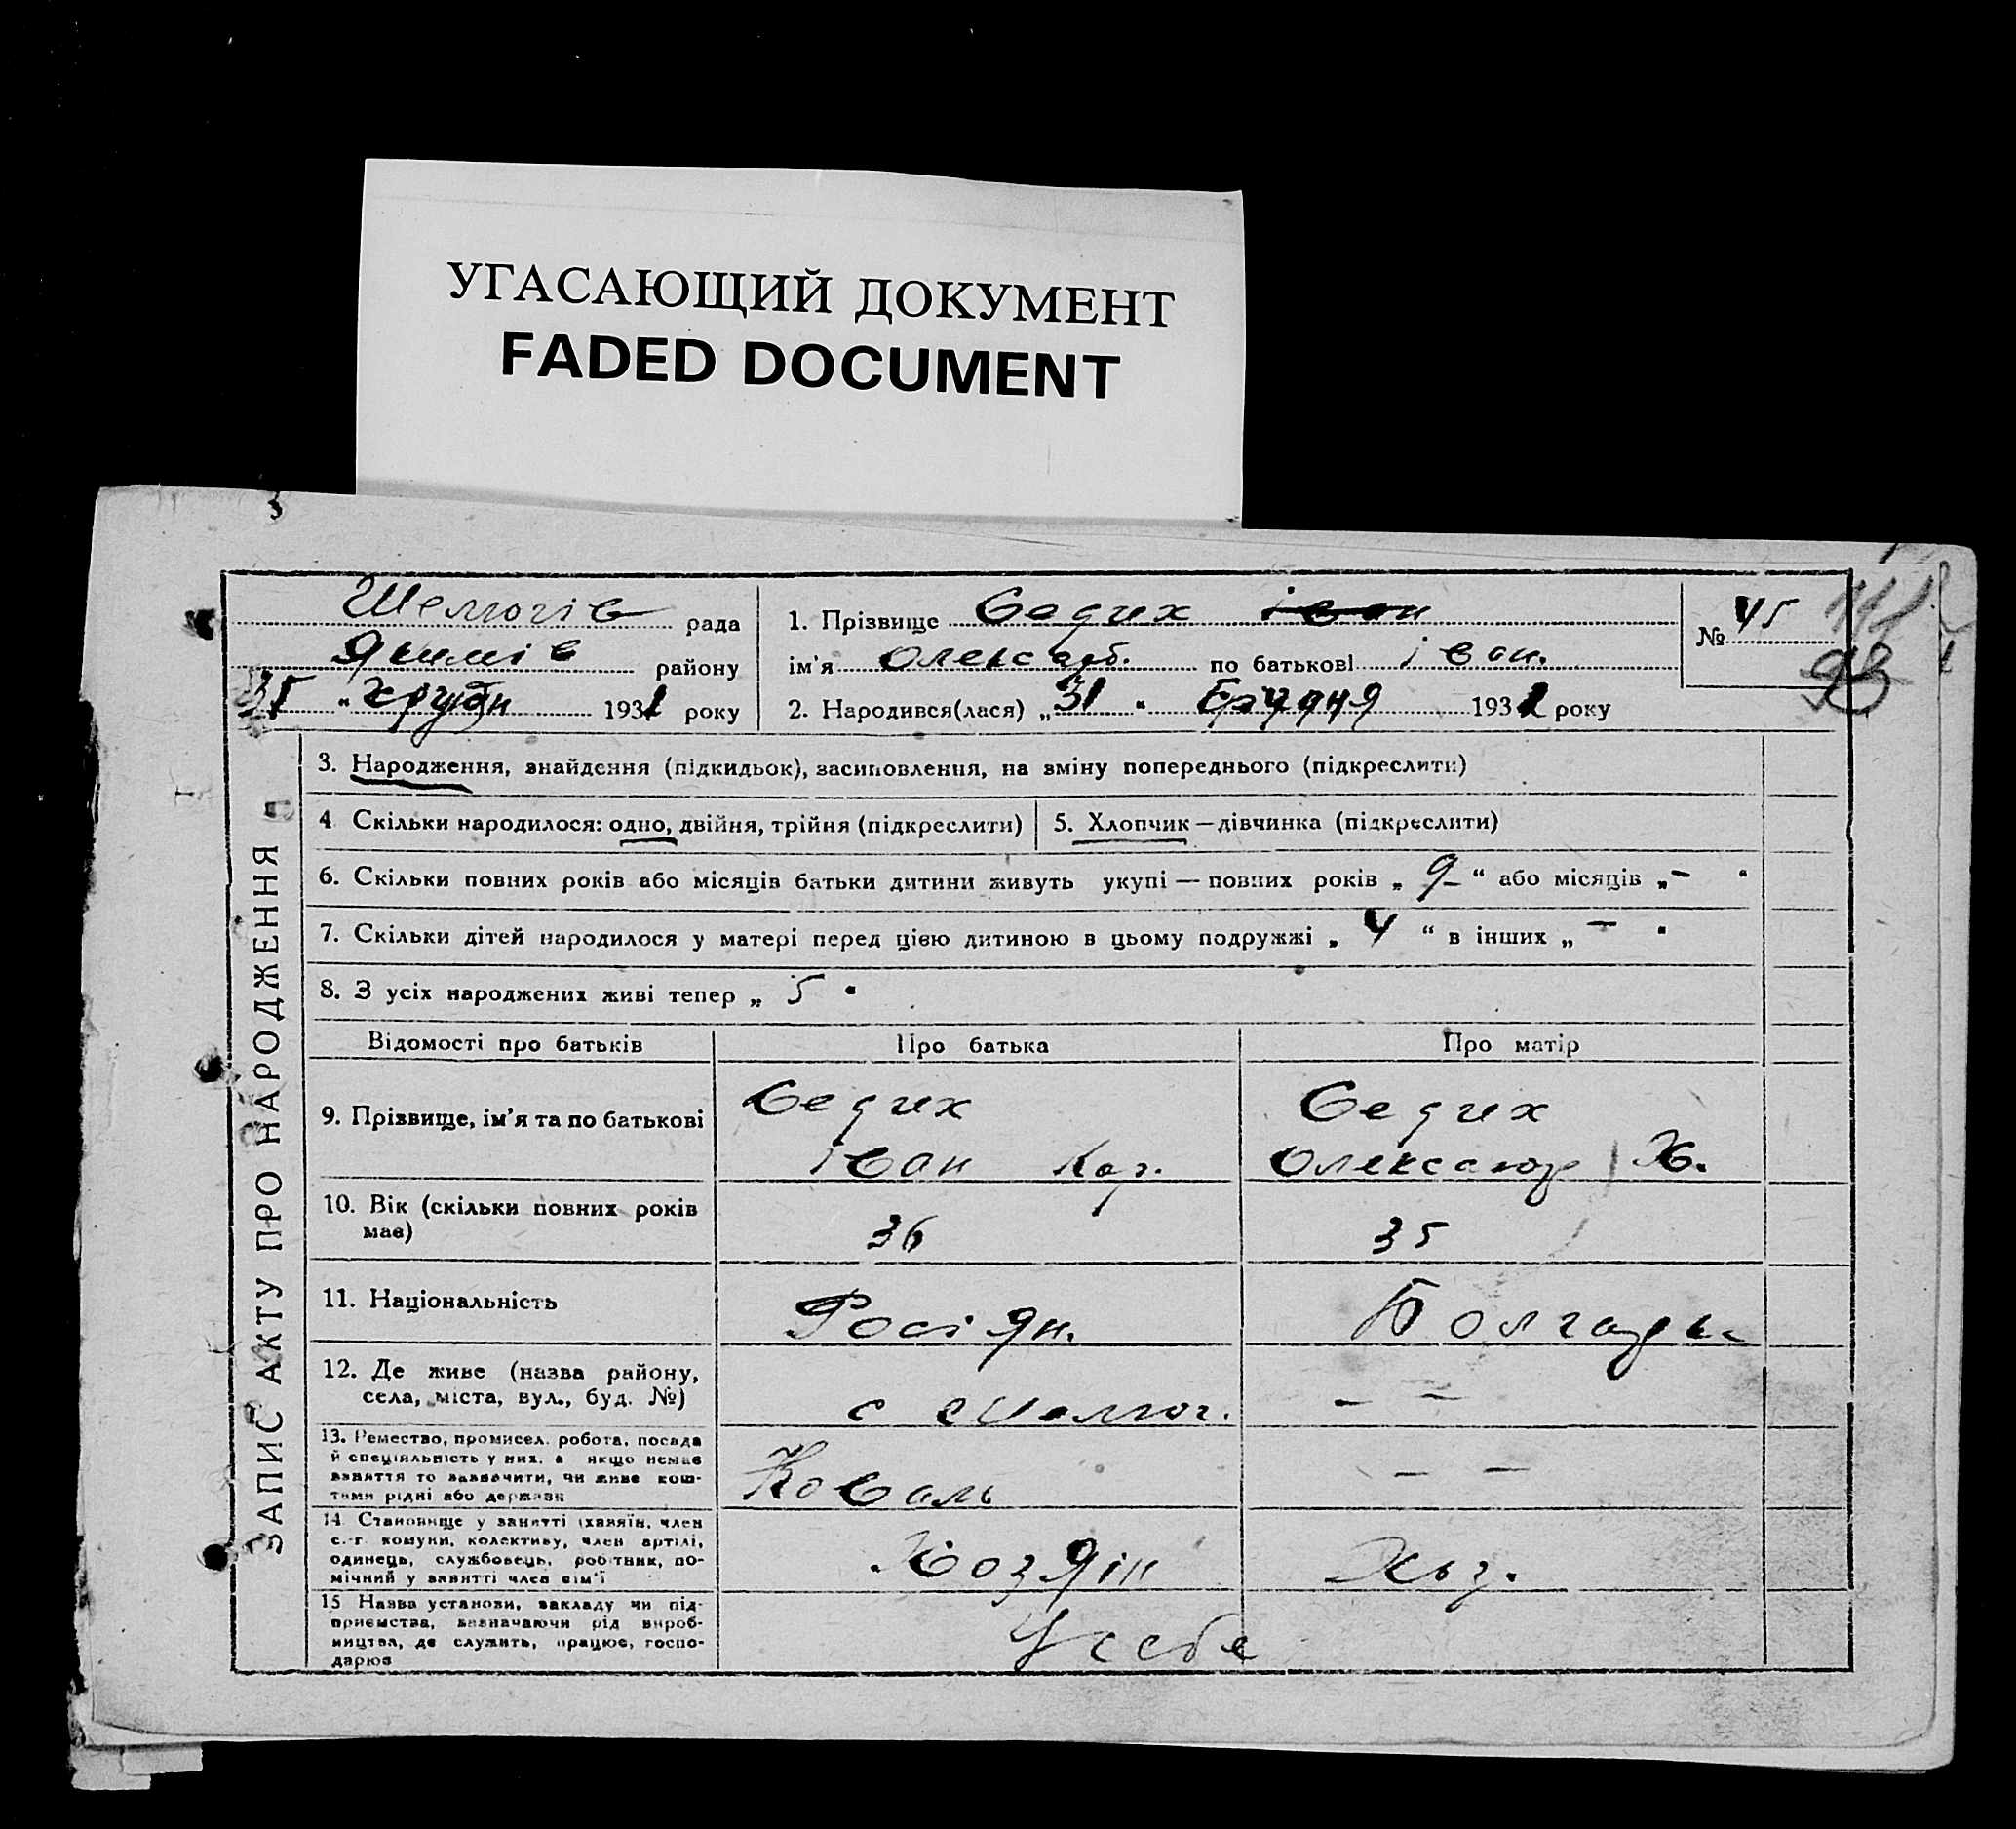 УГАСАЮЩИЙ ДОКУМЕНТ
FADED DOCUMENT
Шелюгів рада
Якимів району
193 року
1. Прізвище Седих іван
ім'я Олександ. по батькові іван.
2. Народився(лася) „31 " Грудня 193 року
№ 45
93
ЗАПИС АКТУ ПРО НАРОДЖЕННЯ
3. Народження, знайдення (підкидьок), засиновлення, на зміну попереднього (підкреслити)
4 Скільки народилося: одно, двійня, трійня (підкреслити)
5. Хлопчик — дівчинка (підкреслити)
6. Скільки повних років або місяців батьки дитини живуть укупі — повних років „ 9 " або місяців „ - "
7. Скільки дітей народилося у матері перед цією дитиною в цьому подружжі „ 4 " в інших „ - "
8. З усіх народжених живі тепер „ 5 "
Відомості про батьків Про батька Про матір
9. Прізвище, ім'я та по батькові
Седих
іван
Седих
10. Вік (скільки повних років
має)
36
35
11. Національність
Росіян.
Болгарк
12. Де живе (назва району,
села, міста, вул., буд. №)
с Шелюг.
- -
13. Ремество, промисел, робота, посада
й спеціяльність у них, а якщо немає
заняття то зазначити, чи живе кош-
тами рідні або держави
Коваль
- -
14 Становище у занятті (хазяїн, член
с.-г. комуни, колективу, член артілі,
одинець, службовець, робітник, по-
мічний у занятті член сім'ї
Хозяін
Хоз.
15 Назва установи, закладу чи під-
приємства, зазначаючи рід вироб-
ництва, де служить, працює, госпо-
дарює
У себе